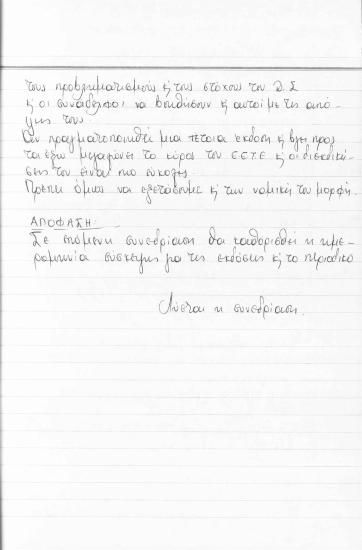 τους προβληματισμούς κ' τους στόχους του Δ.Σ
κ' οι συνάδελφοι να βοηθήσουν κ' αυτοί με τις από-
ψεις τους.
Αν πραγματοποιηθεί μια τέτοια έκδοση κ' βγει προς
τα έξω μεγαλώνει το κύρος του Ε.Ε.Τ.Ε κ' οι διεκδική-
σεις του είναι πιο εύκολες.
Πρέπει όμως να εξετάσουμε κ' την νομική του μορφή.
ΑΠΟΦΑΣΗ:
Σε επόμενη συνεδρίαση θα καθορισθεί η ημε-
ρομηνία σύσκεψης για τις εκδόσεις κ' το περιοδικό
Λύεται η συνεδρίαση.